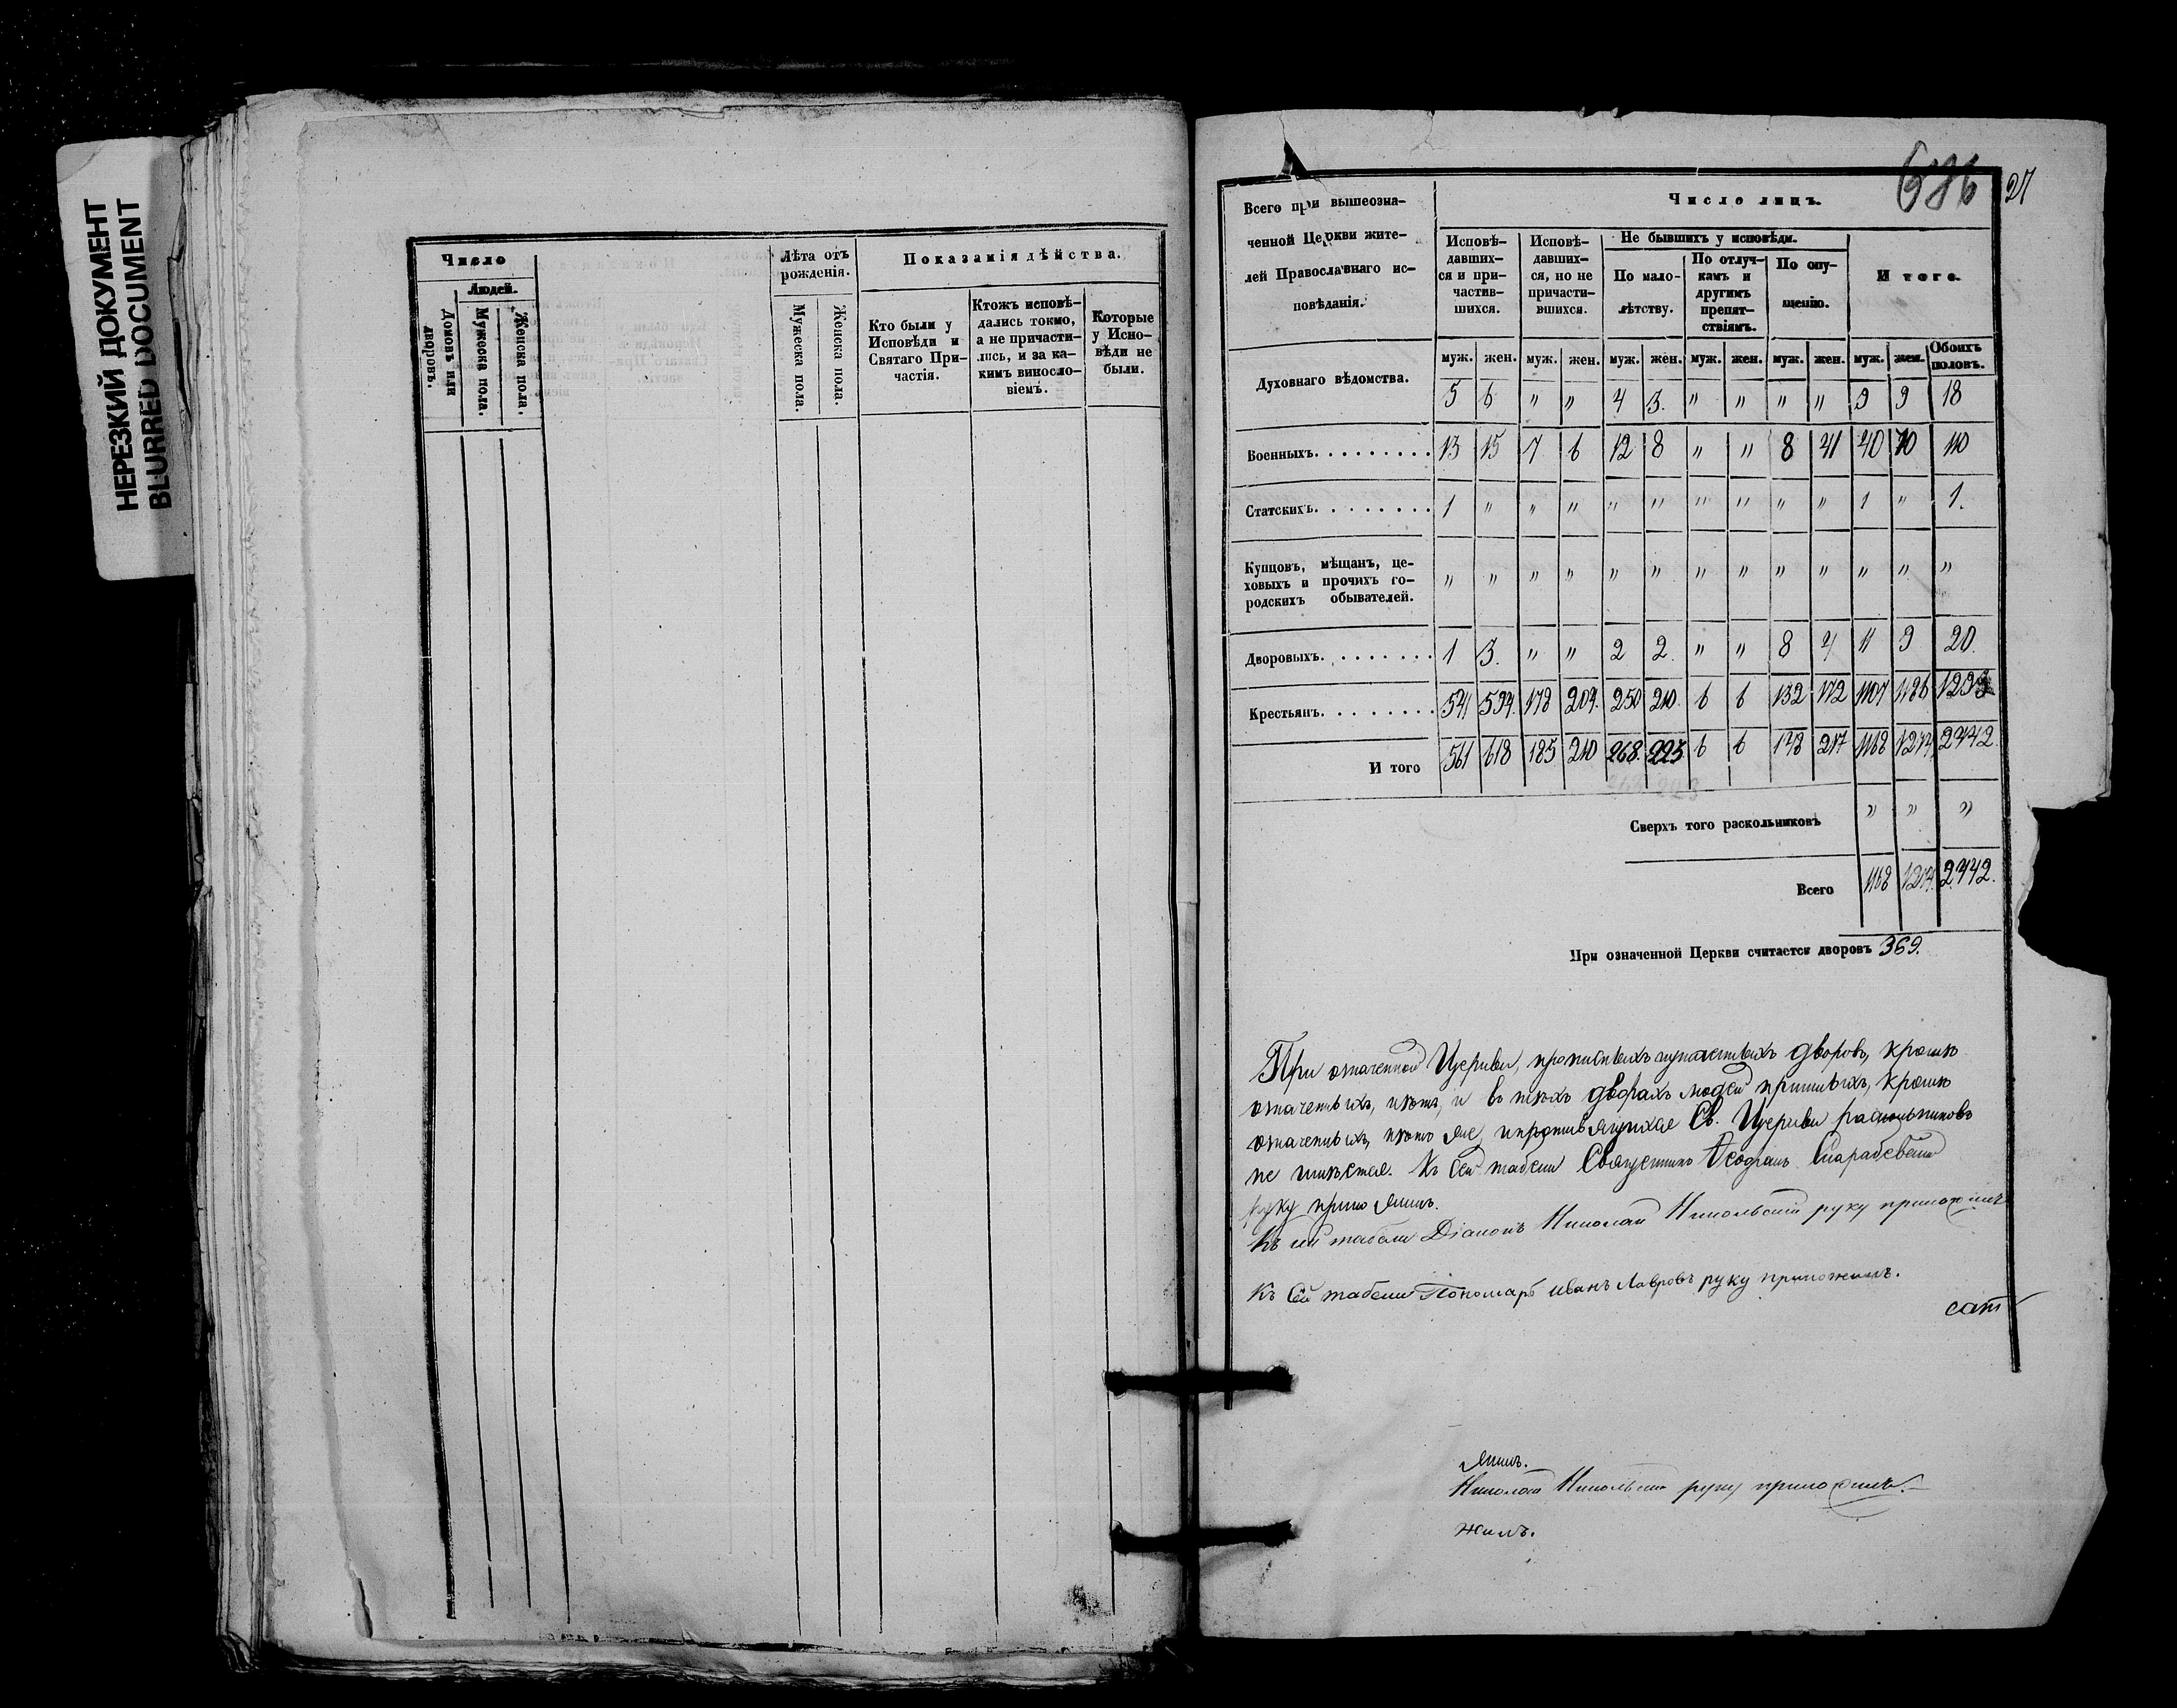 НЕРЕЗКИЙ ДОКУМЕНТ
BLURRED DOCUMENT
Число
Людей.
Домовъ или дворовъ.
Мужеска пола.
Женска пола.
Лѣта отъ рожденія.
Мужеска пола.
Женска пола.
Показанія дѣйства.
Кто были у Исповѣди и Святаго При-
частія.
Ктожъ исповѣ-
дались токмо,
а не причасти-
лись, и за ка-
кимъ винословіемъ.
Которые у Испо-
вѣди не были.
686
27
Всего при вышеозна-
ченной Церкви жите-
лей Православнаго ис-
повѣданія.
Число лицъ.
Исповѣ-
давших-
ся и при-
частив-
шихся.
Исповѣ-
давших-
ся, но не
причасти-
вшихся.
Не бывшихъ у исповѣди.
По мало-
лѣтству.
По отлуч-
камъ и
другимъ
препят-
ствіямъ.
По опу-
щенію.
И того.
муж. жен. муж. жен. муж. жен. муж. жен. муж. жен. муж. жен. Обоихъ половъ.
Духовнаго вѣдомства. 5 6 " " 4 3. " " " " 9 9 18
Военныхъ. 13 15 7 6 12 8 " " 8 41 40 70 110
Статскихъ. 1 " " " " " " " " " 1 " 1.
Купцовъ, мѣщанъ, це-
ховыхъ и прочихъ го-
родскихъ обывателей. " " " " " " " " " " " " "
Дворовыхъ. 1 3. " " 2 2. " " 8 4 11 9 20.
Крестьянъ. 541 594. 178 204. 250 210. 6 6 132 172 1107 1186
И того 561 618 185 210 268. 223. 6 6 148 217 1168 1274 2442.
Сверхъ того раскольниковъ " " "
Всего 1168 1274. 2442.
При означенной Церкви считается дворовъ 369.
При означенной Церкви, прописныхъ дворовъ, кромѣ
означенныхъ, нѣтъ, и въ тѣхъ дворахъ людей кромѣ
означенныхъ, нѣтъ же, и противящихся Св. Церкви раскольниковъ
не имѣется. Къ сей табели Священникъ Ѳеофанъ
руку приложилъ.
Къ сей табели Діаконъ Николай Никольскій руку приложилъ
Къ сей табели Пономарь Иванъ Лавровъ руку приложилъ.
жилъ.
Николай Никольскій руку приложилъ.
жилъ.